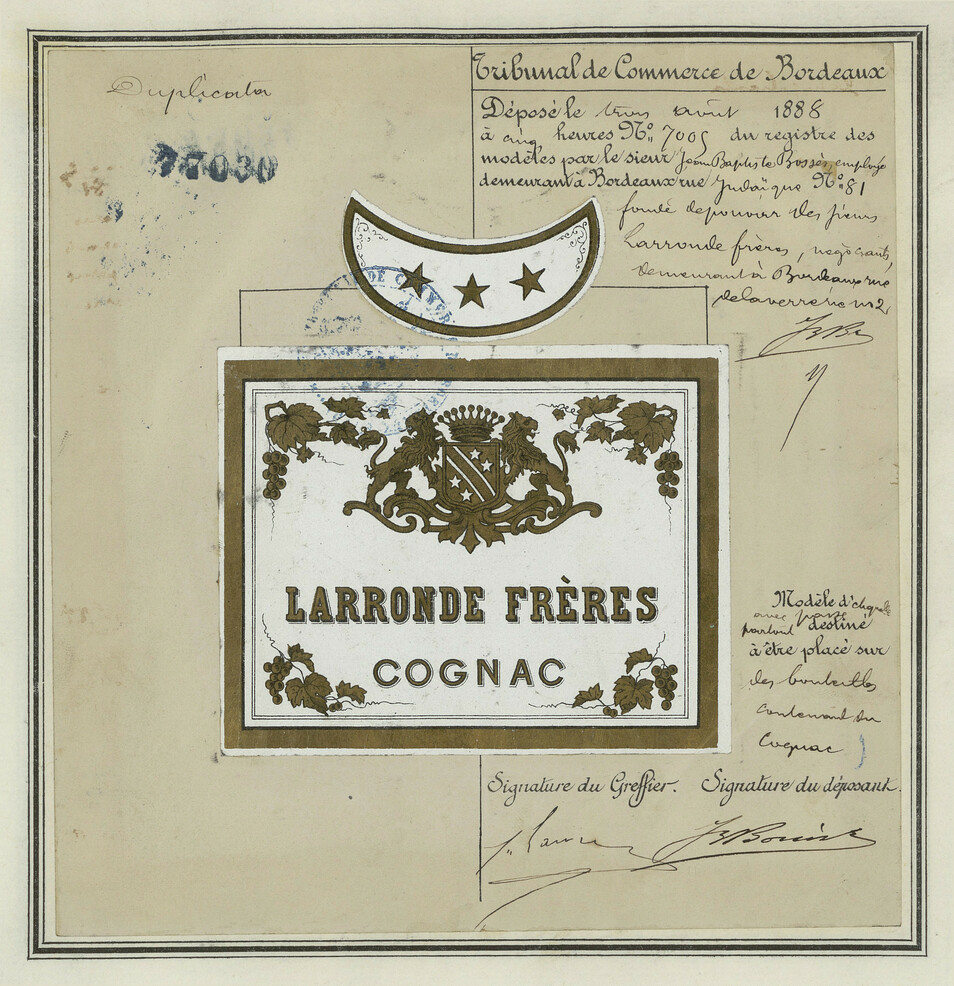 Duplicata
77030
Tribunal de Commerce de Bordeaux
Déposé le trois août 1888
à cinq heures N° 7005 du registre des
modèles par le sieur Jean Baptiste employé
demeurant à Bordeaux rue Judaïque N° 81
fondé de pouvoir des sieurs
Larronde frères, négociants,
demeurant à Bordeaux rue
de la verrerie n° 2
LARRONDE FRÈRES
COGNAC
Modèle d'étiquette
avec passe
partout destiné
à être placé sur
des bouteilles
contenant du
Cognac
Signature du Greffier. Signature du déposant.